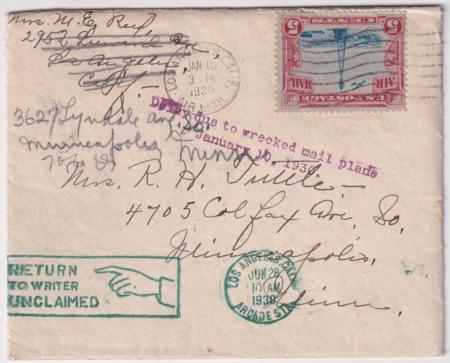 Mrs. M. E. Reed,
2952 Ave.
Los Angeles,
Calif.
3627 Lyndale Ave. So.
Minneapolis
Minn.
LOS ANGELES, CALIF.
JAN 10
3 PM
1930
AIR MAIL
U.S. POSTAGE
AIR MAIL
5 CENTS 5
due to wrecked mail plane
January 10, 1930
Mrs. R. H. Tuttle
4705 Colfax Ave. So.
Minneapolis,
Minn.
RETURN
TO WRITER
UNCLAIMED
LOS ANGELES, CAL.
JUN 28
10 AM
1930
ARCADE STA.